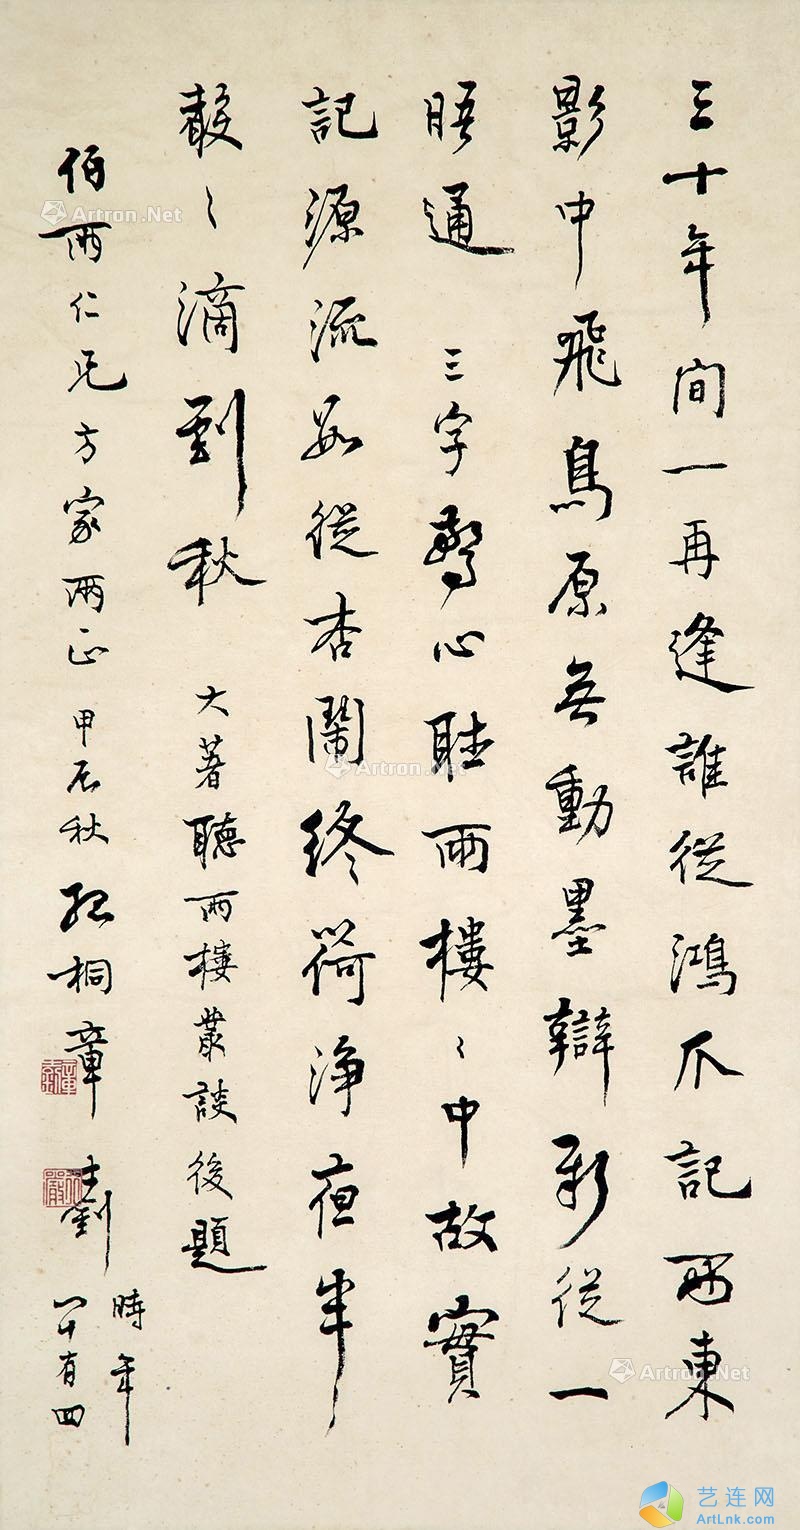 三十年間一再逢誰從鴻爪記西東
影中飛鳥原無動墨辯新從一
晤通 三字驚心聽雨樓〻中故實
記源流始從杏鬧終荷淨夜半
聲〻滴到秋 大著聽雨樓叢談後題
伯雨仁兄方家兩正 甲辰秋 孤桐章士釗 時年
八十有四
Artron.Net
Artron.Net
Artron.Net
艺连网
ArtLnk.com